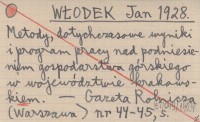 WŁODEK Jan 1928.
Metody, dotychczasowe wyniki
i program pracy nad podniesie-
niem gospodarstwa górskiego
w województwie krakow-
skiem. — Gazeta Rolnicza
(Warszawa) nr 44-45, s.